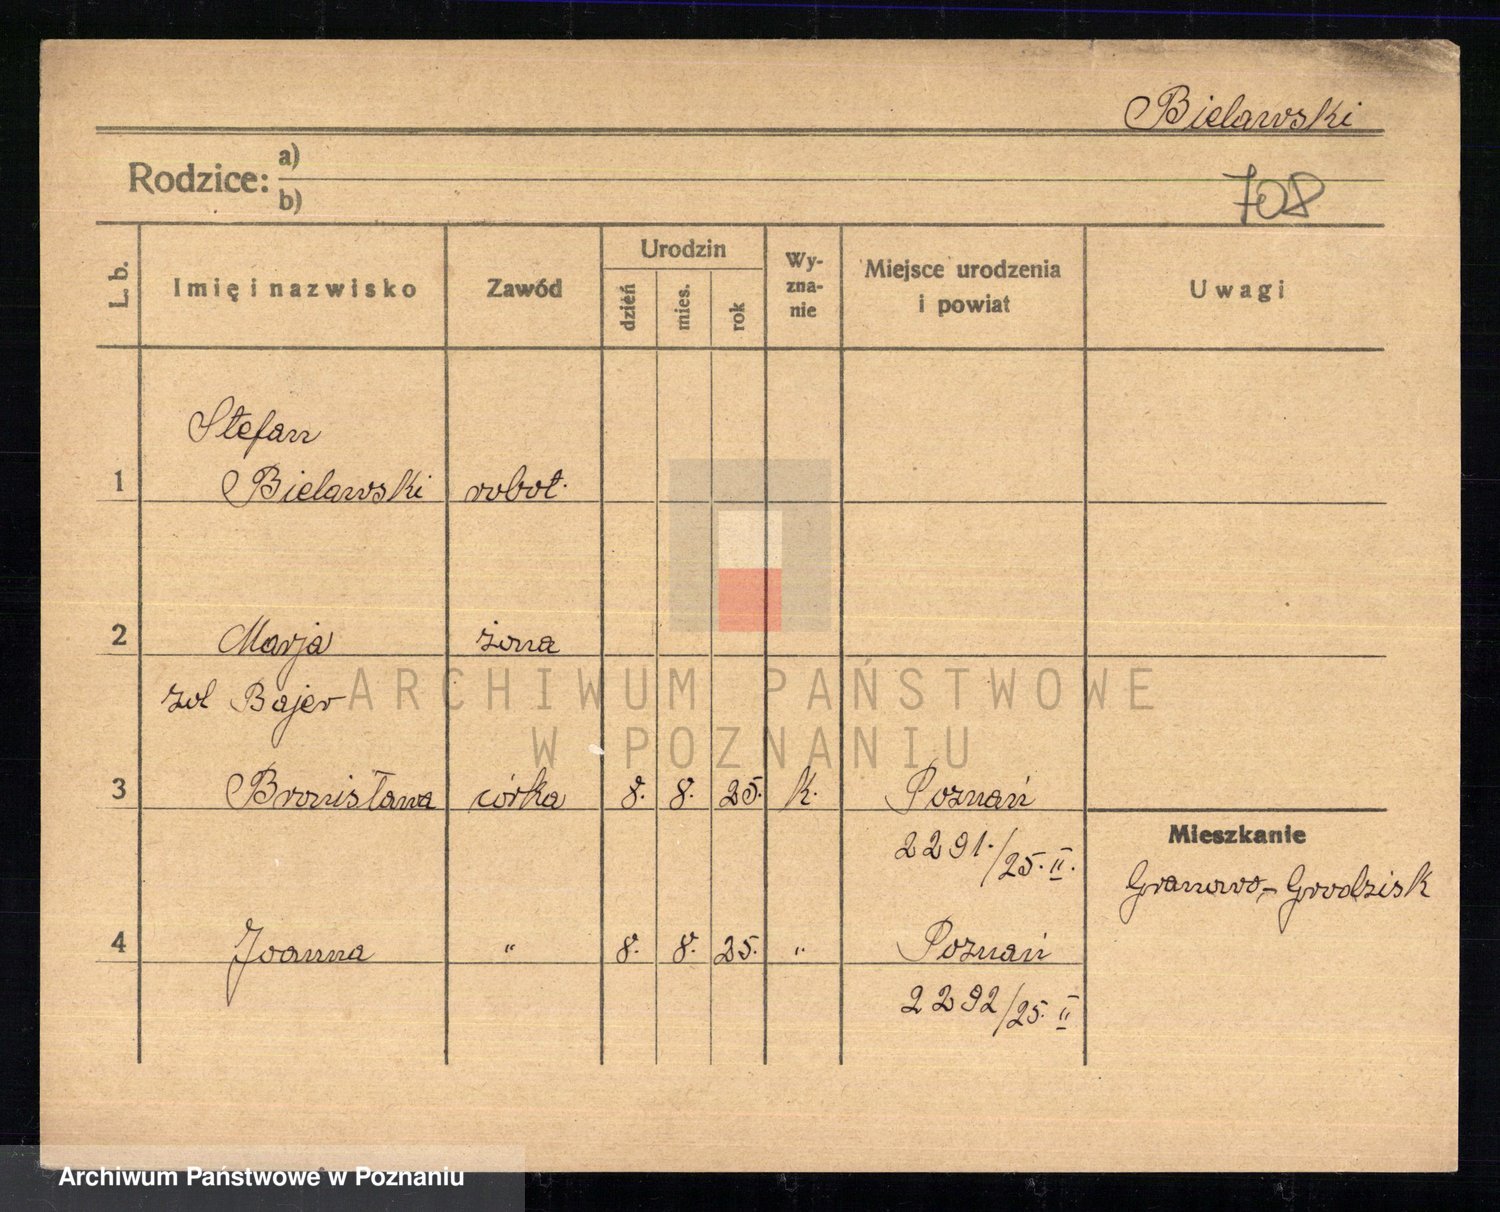 Bielawski
Rodzice: a)
b)
708
L. b.
Imię i nazwisko
Zawód
Urodzin
dzień
mies.
rok
Wy-
zna-
nie
Miejsce urodzenia
i powiat
Uwagi
Stefan
1 Bielawski robot.
2 Marja żona
zd Bajer
3 Bronisława córka 8. 8. 25. k. Poznań
2291./25. II.
Mieszkanie
Granowo-Grodzisk
4 Joanna " 8. 8. 25. " Poznań
2292/25. II
ARCHIWUM PAŃSTWOWE
W POZNANIU
Archiwum Państwowe w Poznaniu